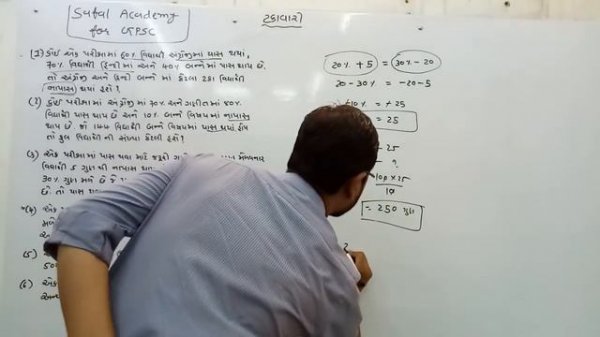 Sufal Academy
for GPSC
ટકાવારી
(1) કોઈ એક પરીક્ષામાં 60% વિદ્યાર્થી અંગ્રેજીમાં પાસ થયા,
70% વિદ્યાર્થી હિન્દી માં અને 40% બન્નેમાં પાસ થાય છે.
તો અંગ્રેજી અને હિન્દી બન્ને માં કેટલા ટકા વિદ્યાર્થી
નાપાસ થયા હશે?
(2) કોઈ પરીક્ષામાં અંગ્રેજીમાં 70% અને ગણીતમાં 80%
વિદ્યાર્થી પાસ થાય છે અને 10% બન્ને વિષયમાં નાપાસ
થાય છે. જો 144 વિદ્યાર્થી બન્ને વિષયમાં પાસ થયાં હોય
તો કુલ વિદ્યાર્થી ની સંખ્યા કેટલી હશે?
(3) એક પરીક્ષામાં પાસ થવા માટે જરૂરી મેળવનાર
વિદ્યાર્થી 5 ગુણ થી નાપાસ થાય
30% ગુણ મળે છે
છે. તો પાસ
(4) એક
(5)
500
(6) એક
20% + 5 = 30% - 20
20 - 30% = -20 - 5
10% = + 25
= 25
25
?
100 × 25
10
= 250 ગુણ